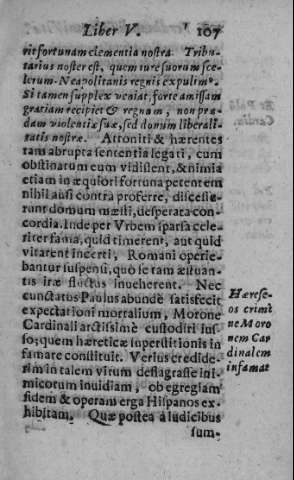 Liber V. 107
rit fortunam clementia nostra. Tribu-
tarius noster est, quem iure suorum sce-
lerum Neapolitanis regnis expulim⁹.
Si tamen supplex veniat, forte amissam
gratiam recipiet & regnum, non præ-
dam violentiæ suæ, sed donum liberali-
tatis nostræ. Attoniti & hærentes
tam abrupta sententia legati, cum
obstinatum eum vidissent, & nimia
etiam in æquiori fortuna petentem
nihil ausi contra proferre, discesse-
runt domum mæsti, desperata con-
cordia. Inde per Vrbem sparsa cele-
riter fama, quid timerent, aut quid
vitarent incerti, Romani operie-
bantur suspensi, quò se tam æstuan-
tis iræ fluctus inueherent. Nec
cunctatus Paulus abundè satisfecit
expectationi mortalium, Morone
Cardinali arctissimè custodiri ius-
so; quem hæreticæ superstitionis in
famare constituit. Verius credide-
rim in talem virum deflagrasse ini-
micorum inuidiam, ob egregiam
fidem & operam erga Hispanos ex-
hibitam. Quæ postea à Iudicibus
sum-
Hærese-
os crimi
ne Moro
nem Car
dinalem
infamat